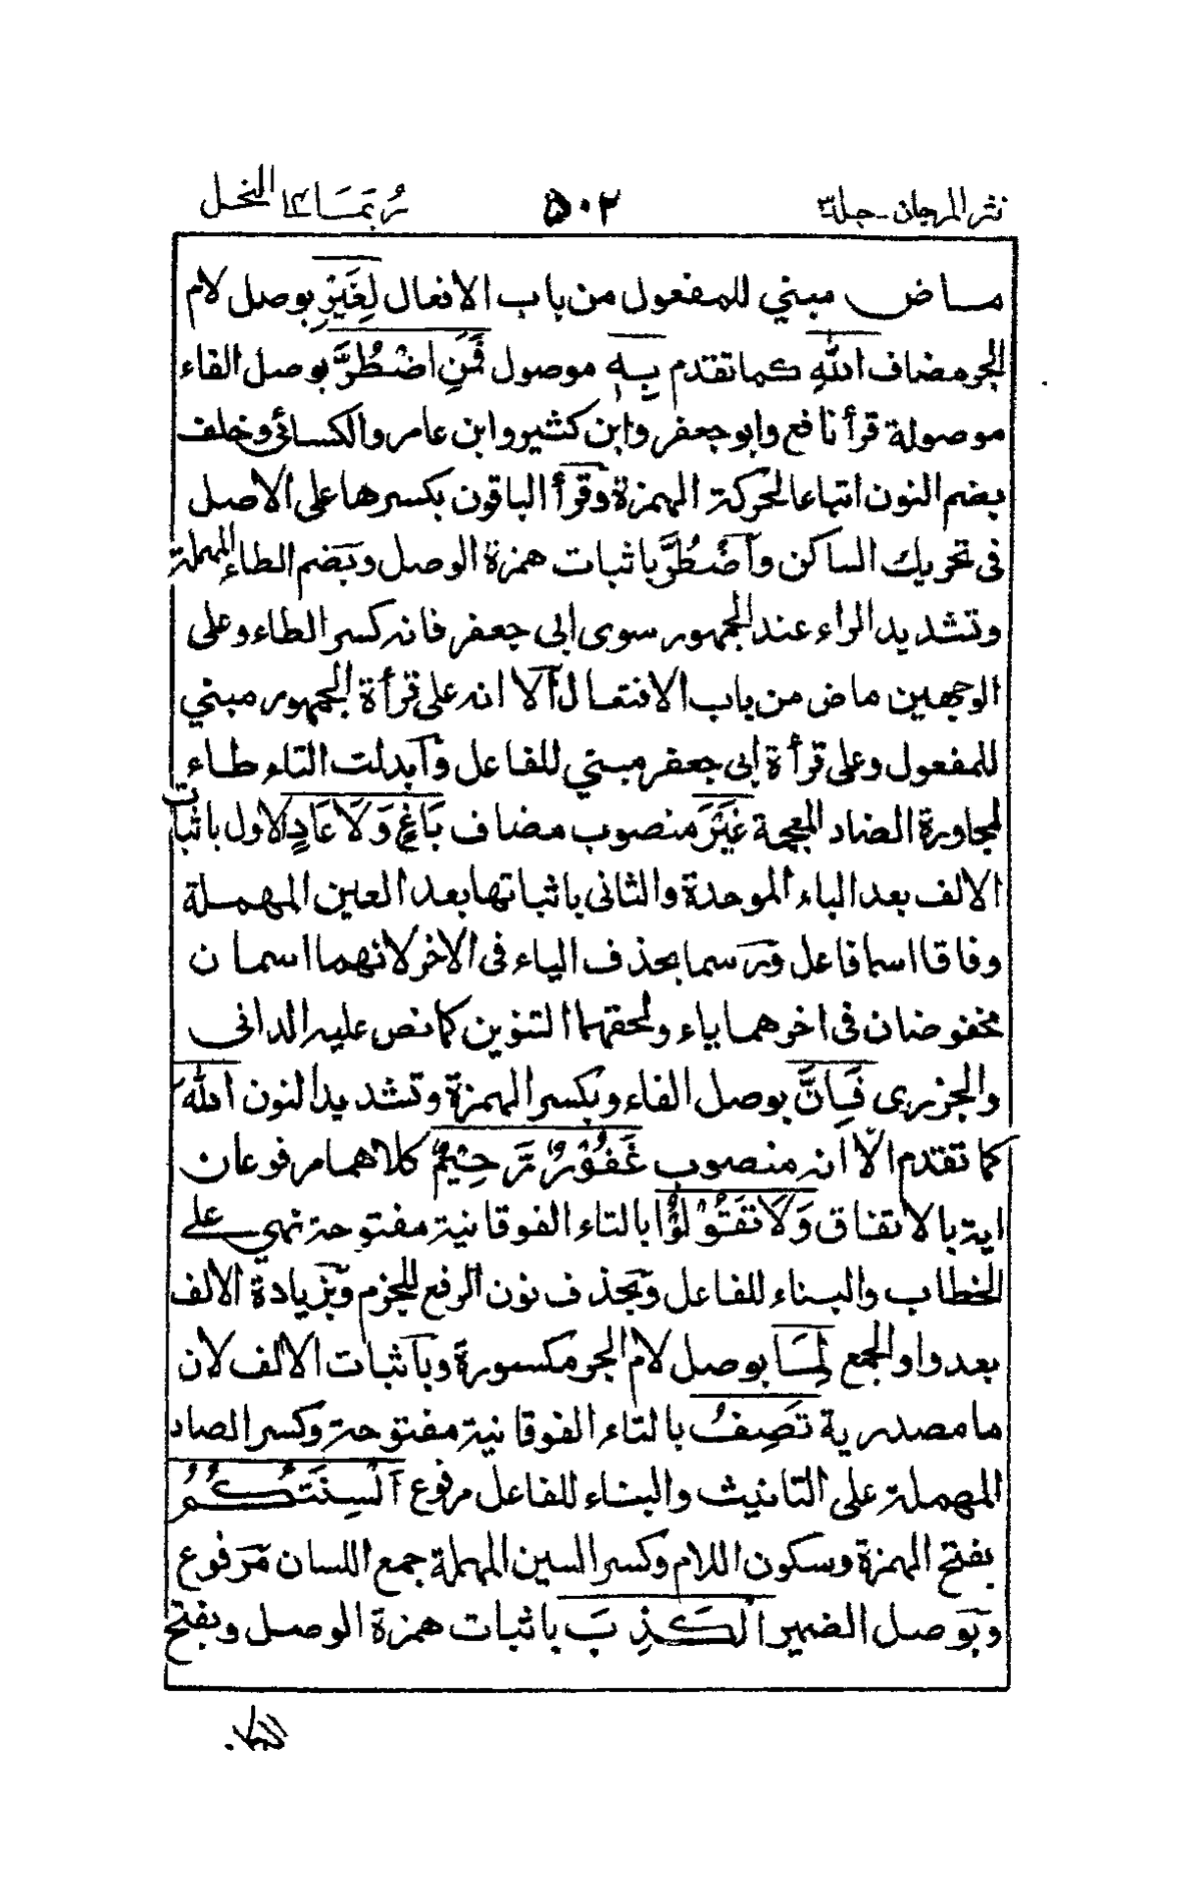 نثر المرجان - جلد ٣ ٥٠٢ ربما ١٤ النحل
ماض مبني للمفعول من باب الافعال لِغَيْرِ بوصل لام
الجر مضاف اللهِ كما تقدم بِهٖ موصول فَمَنِ اضْطُرَّ بوصل الفاء
موصولة قرأ نافع وابو جعفر وابن كثير وابن عامر والكسائي وخلف
بضم النون اتباعا لحركة الهمزة وقرأ الباقون بكسرها على الاصل
في تحريك الساكن واضْطُرَّ باثبات همزة الوصل وبضم الطاء المهملة
وتشديد الراء عند الجمهور سوى ابي جعفر فانه كسر الطاء وعلى
الوجهين ماض من باب الافتعال الا انه على قرأة الجمهور مبني
للمفعول وعلى قرأة ابي جعفر مبني للفاعل وابدلت التاء طاء
لمجاورة الضاد المعجمة غَيْرَ منصوب مضاف بَاغٍ وَلَا عَادٍ الاول باثبات
الالف بعد الباء الموحدة والثاني باثباتها بعد العين المهملة
وفاقا اسما فاعل ورسما بحذف الياء في الاخر لانهما اسمان
مخفوضان في اخرهما ياء ولحقهما التنوين كما نص عليه الداني
والجزري فَاِنَّ بوصل الفاء وبكسر الهمزة وتشديد النون اللهَ
كما تقدم الّا انه منصوب غَفُوْرٌ رَّحِيْمٌ كلاهما مرفوعان
اية بالاتفاق وَلَا تَقُوْلُوْا بالتاء الفوقانية مفتوحة نهي على
الخطاب والبناء للفاعل وبحذف نون الرفع للجزم وبزيادة الالف
بعد واو الجمع لِمَا بوصل لام الجر مكسورة وباثبات الالف لان
ما مصدرية تَصِفُ بالتاء الفوقانية مفتوحة وكسر الصاد
المهملة على التانيث والبناء للفاعل مرفوع اَلْسِنَتُكُمُ
بفتح الهمزة وسكون اللام وكسر السين المهملة جمع اللسان مرفوع
وبوصل الضمير الْكَذِبَ باثبات همزة الوصل وبفتح